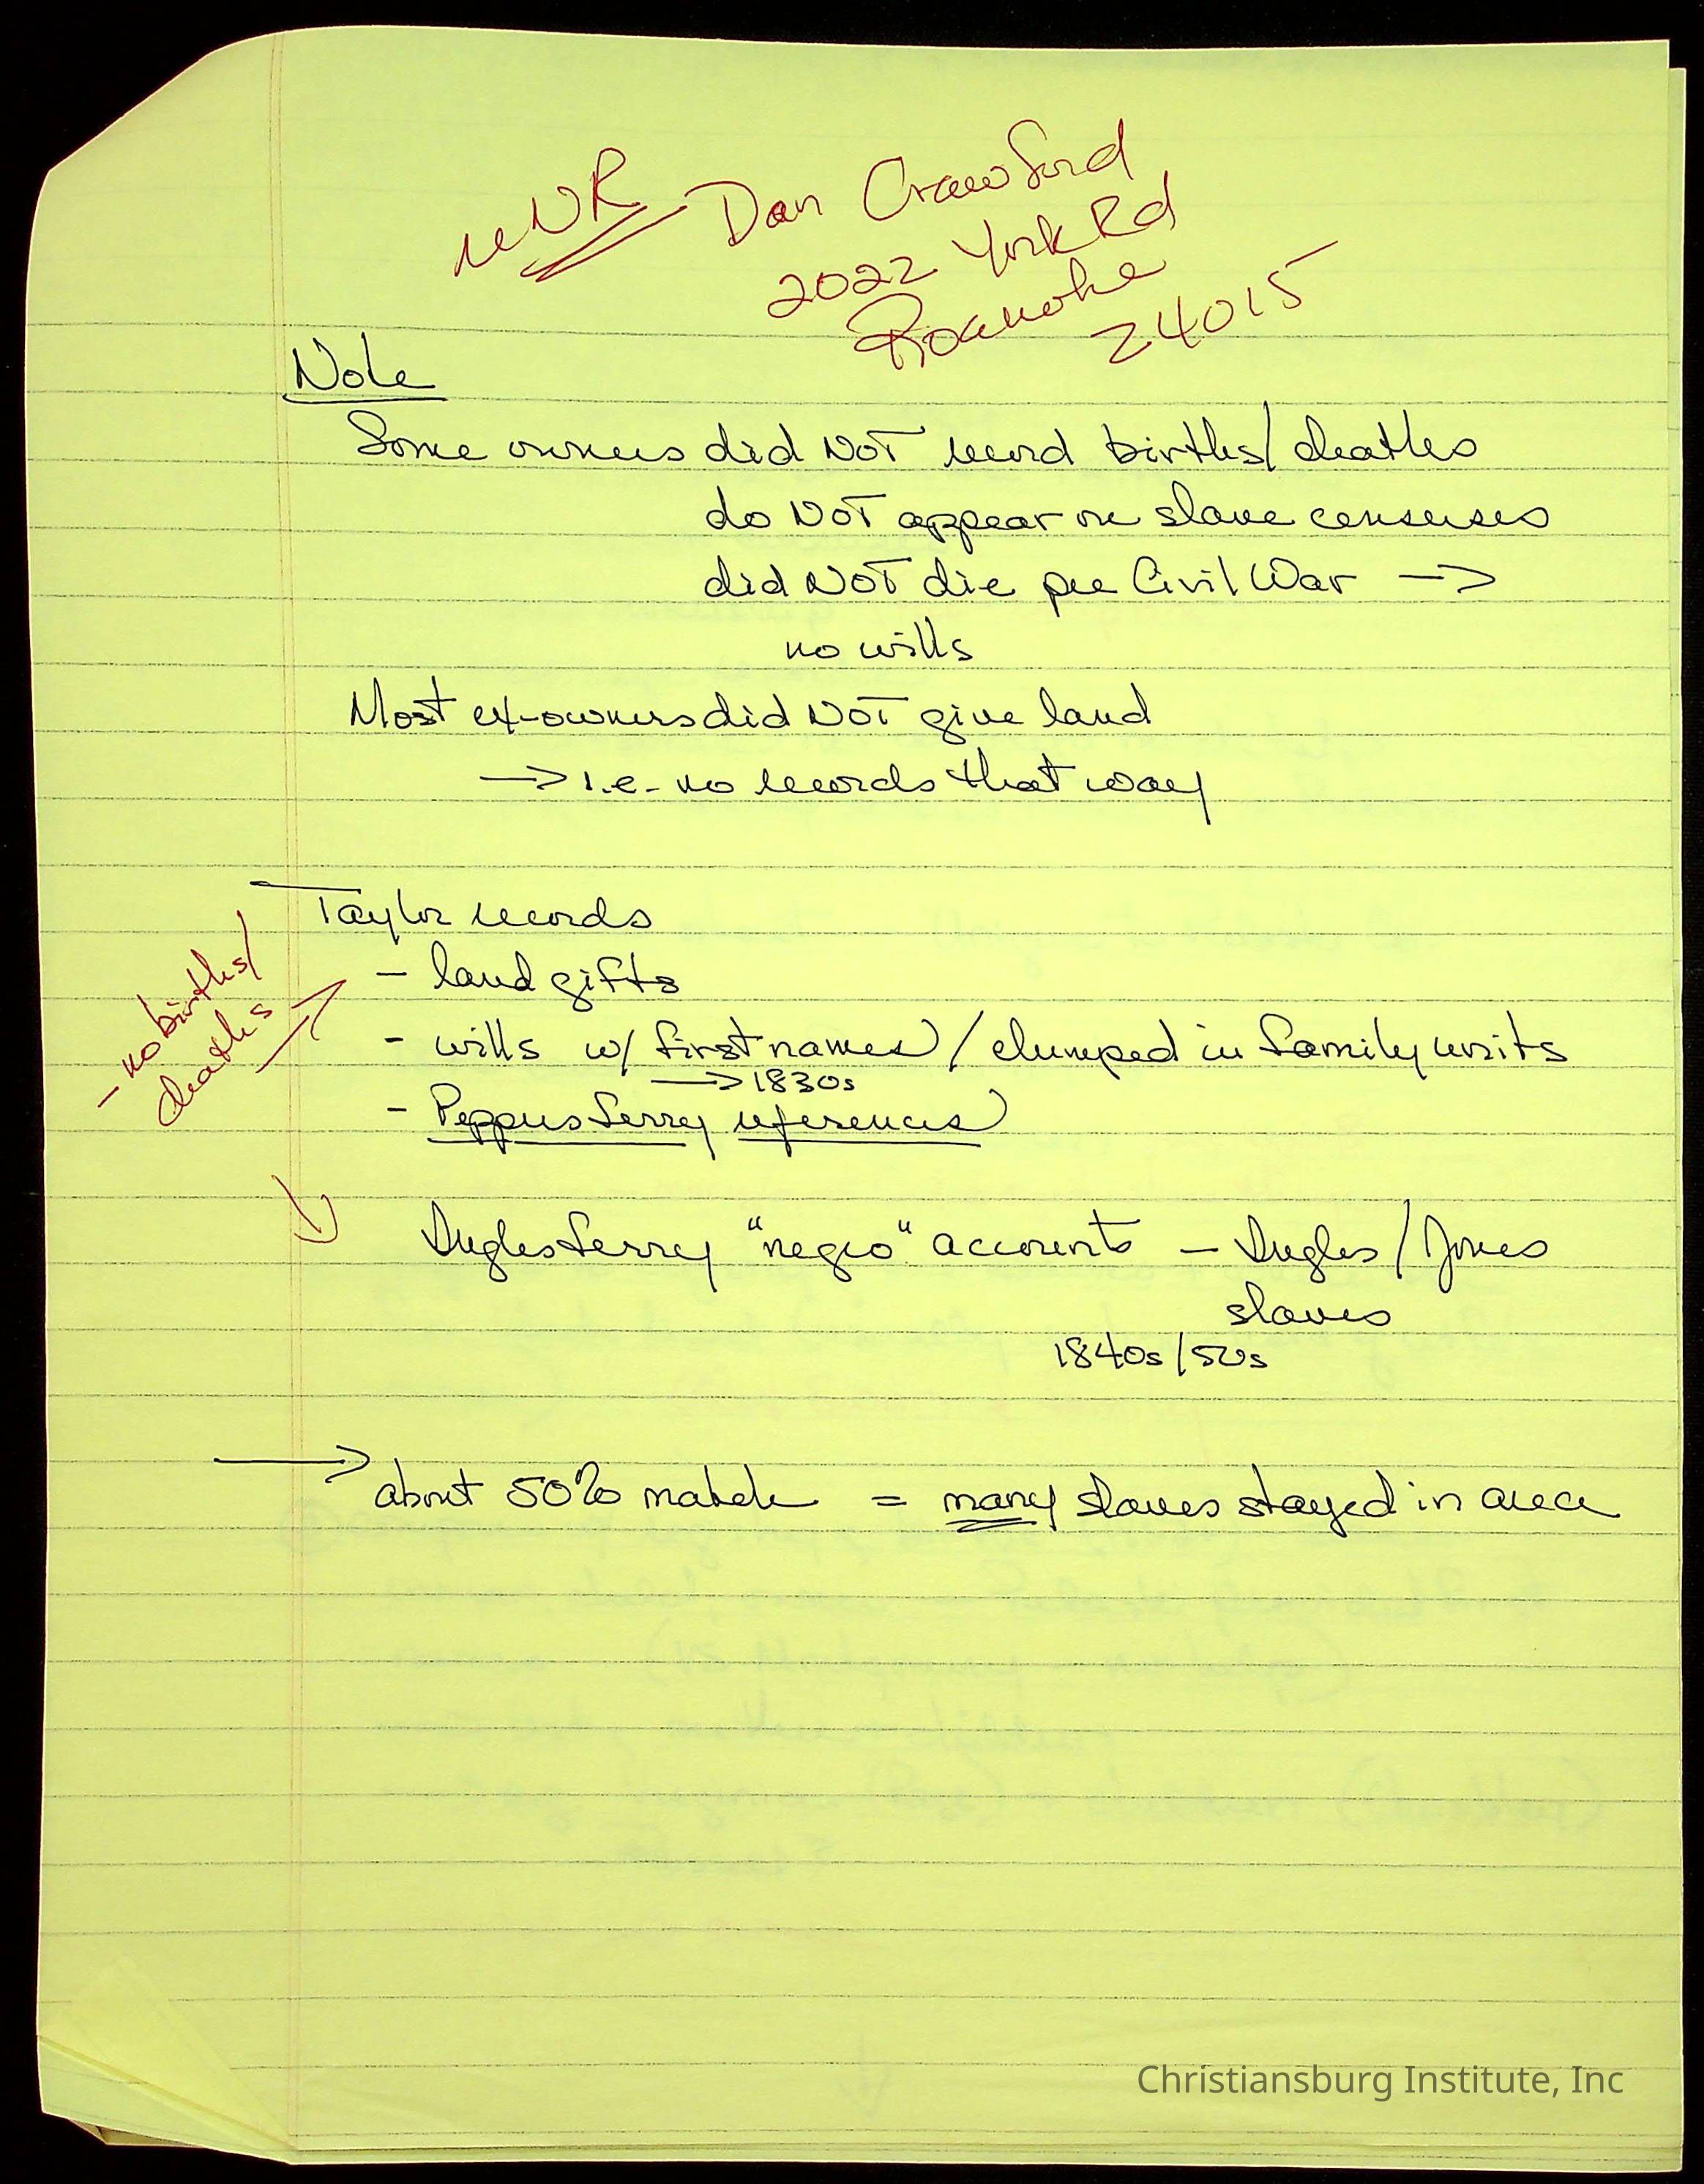 NNR Dan Crawford
2022 York Rd
Roanoke
24015
Note
Some owners did NOT record births/deaths
do NOT appear on slave censuses
did NOT die pre Civil War →
no wills
Most ex-owners did NOT give land
→ i.e. no records that way
Taylor records
- no births/
deaths →
- land gifts
- wills w/ first names / clumped in family units
→ 1830s
- Peppers Ferry references
Ingles Ferry "negro" accounts - Ingles / Jones
slaves
1840s/50s
→ about 50% match = many slaves stayed in area
Christiansburg Institute, Inc